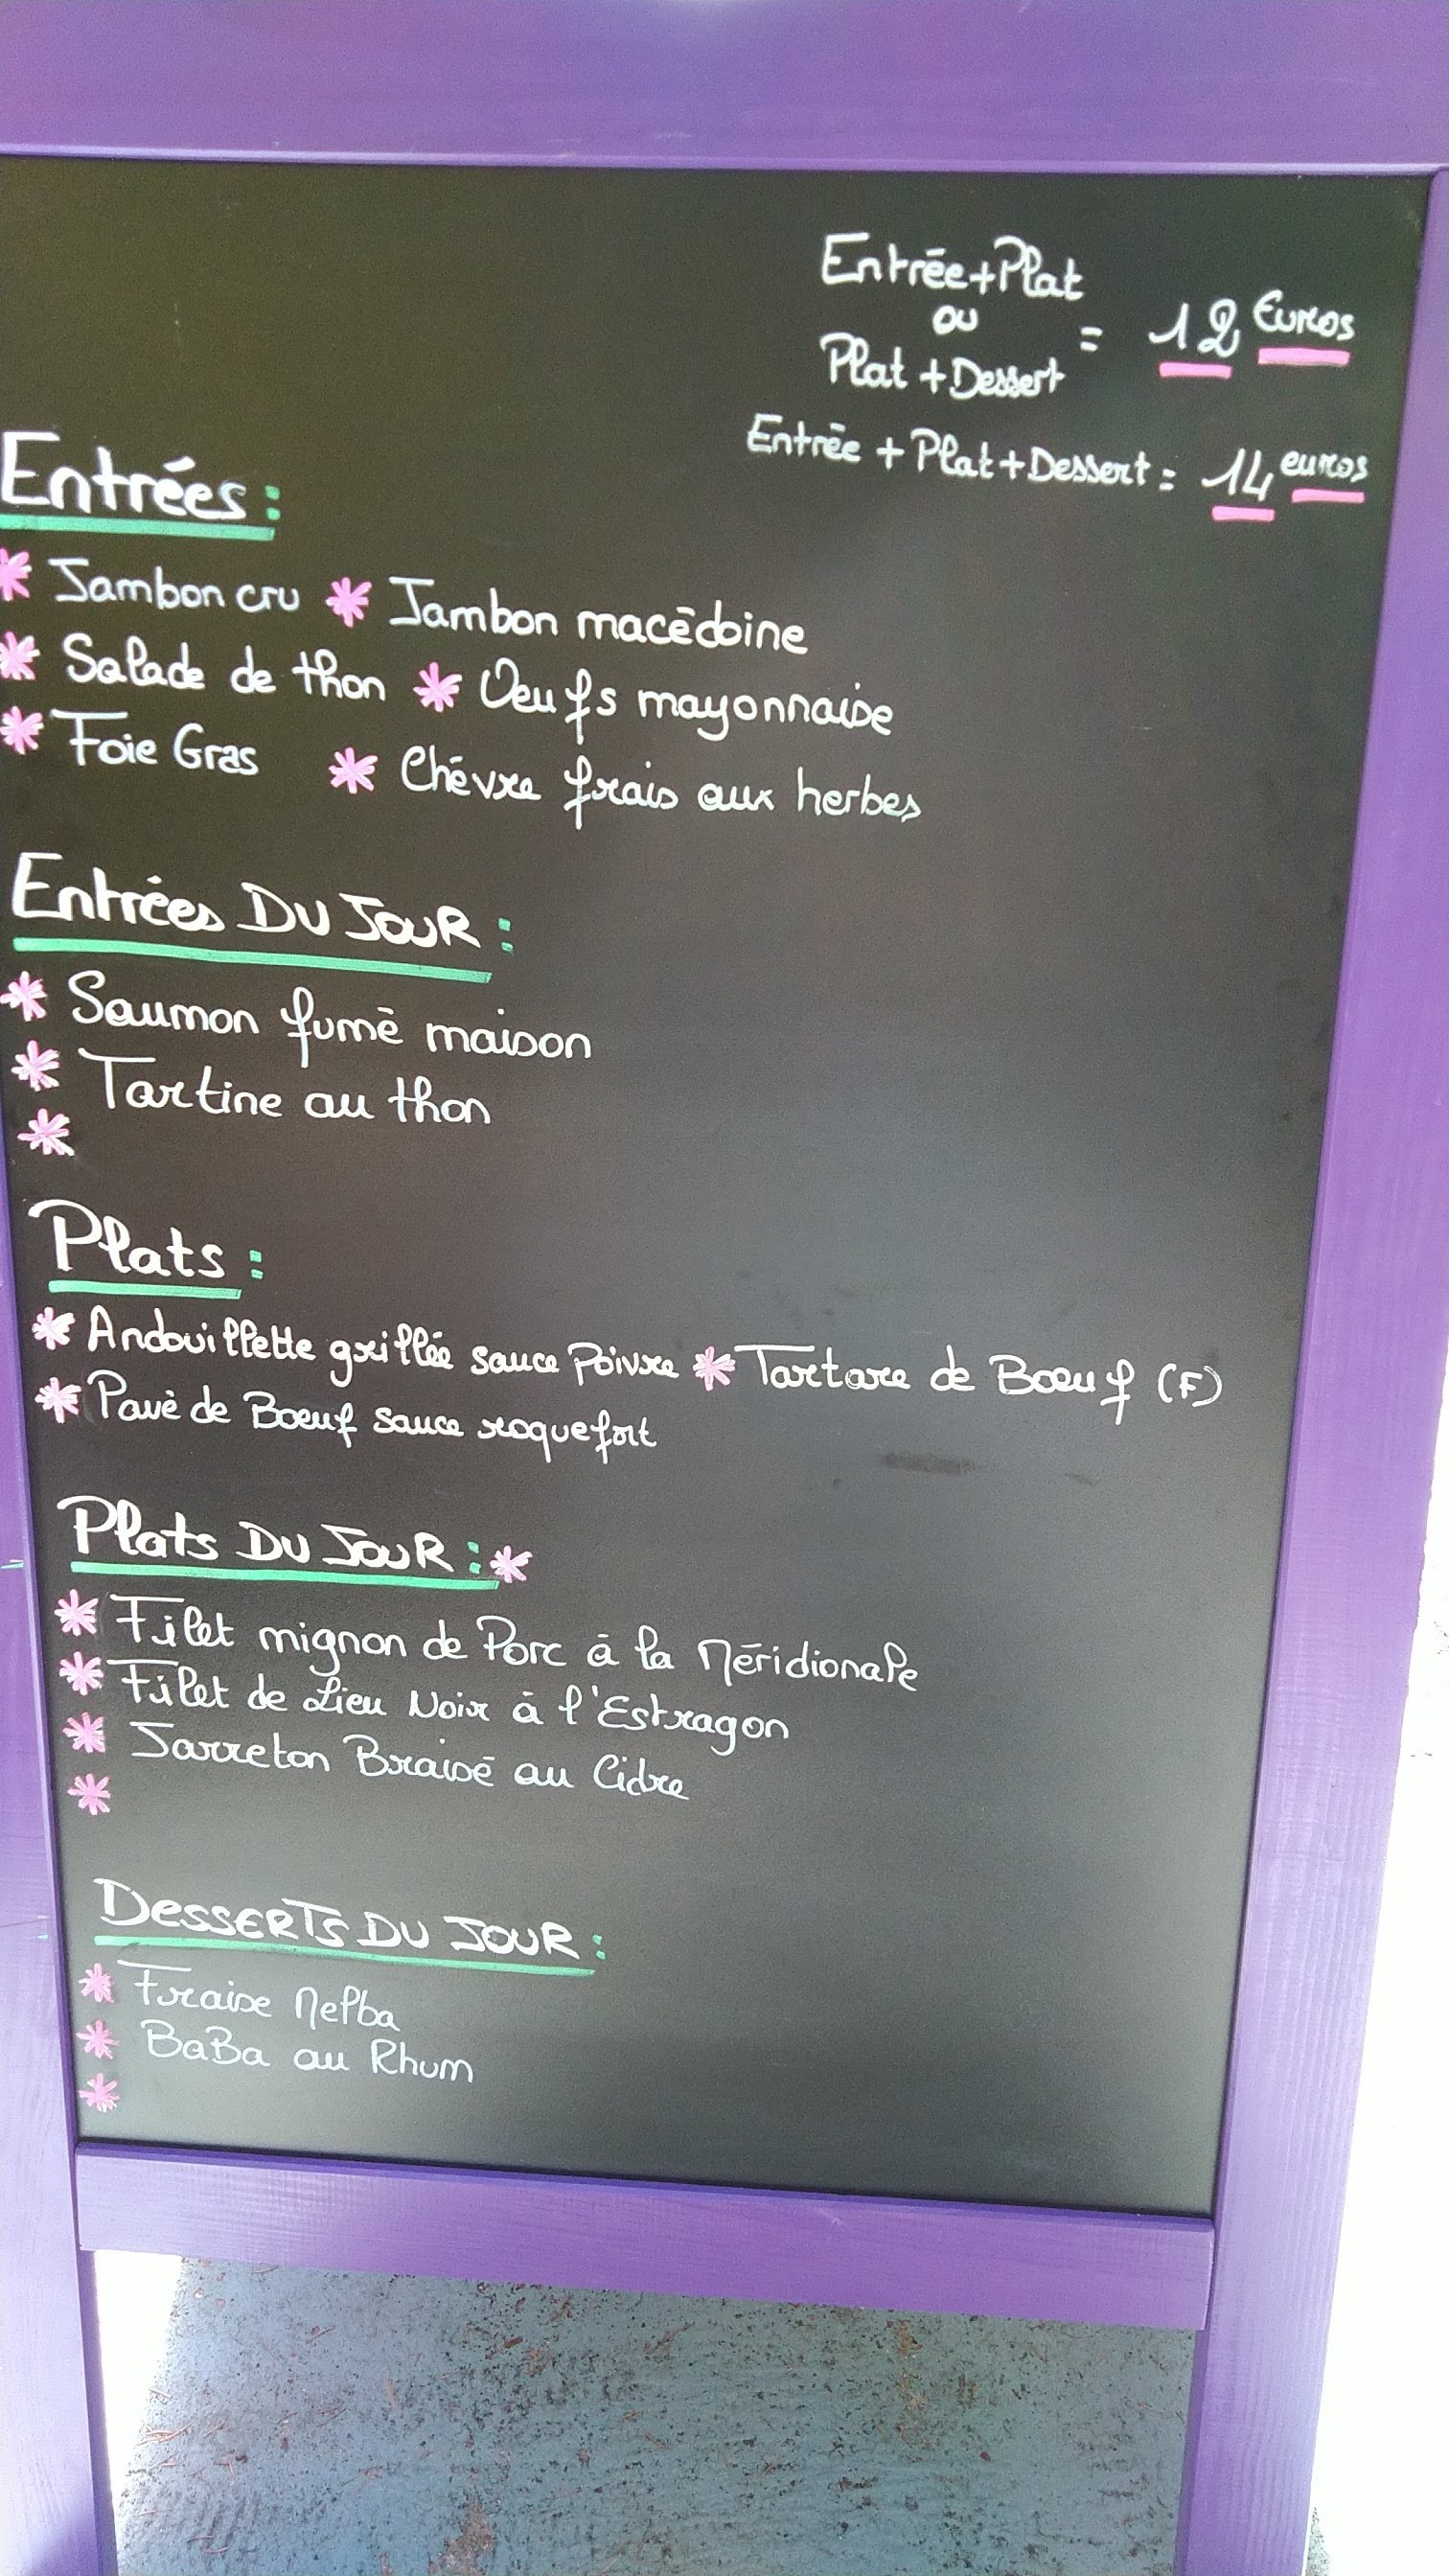 Entrée+Plat
ou
Plat + Dessert
= 12 Euros
Entrée + Plat + Dessert = 14 euros
Entrées :
* Jambon cru * Jambon macédoine
* Salade de thon * Oeufs mayonnaise
* Foie Gras * Chévre frais aux herbes
Entrées DU JOUR :
* Saumon fumé maison
* Tartine au thon
*
Plats :
* Andouillette grillée sauce Poivre * Tartare de Boeuf (F)
* Pavé de Boeuf sauce roquefort
Plats DU JOUR : *
* Filet mignon de Porc à la Méridionale
* Filet de Lieu Noir à l'Estragon
* Jarreton Braisé au Cidre
*
DESSERTS DU JOUR :
* Fraise Melba
* BaBa au Rhum
*